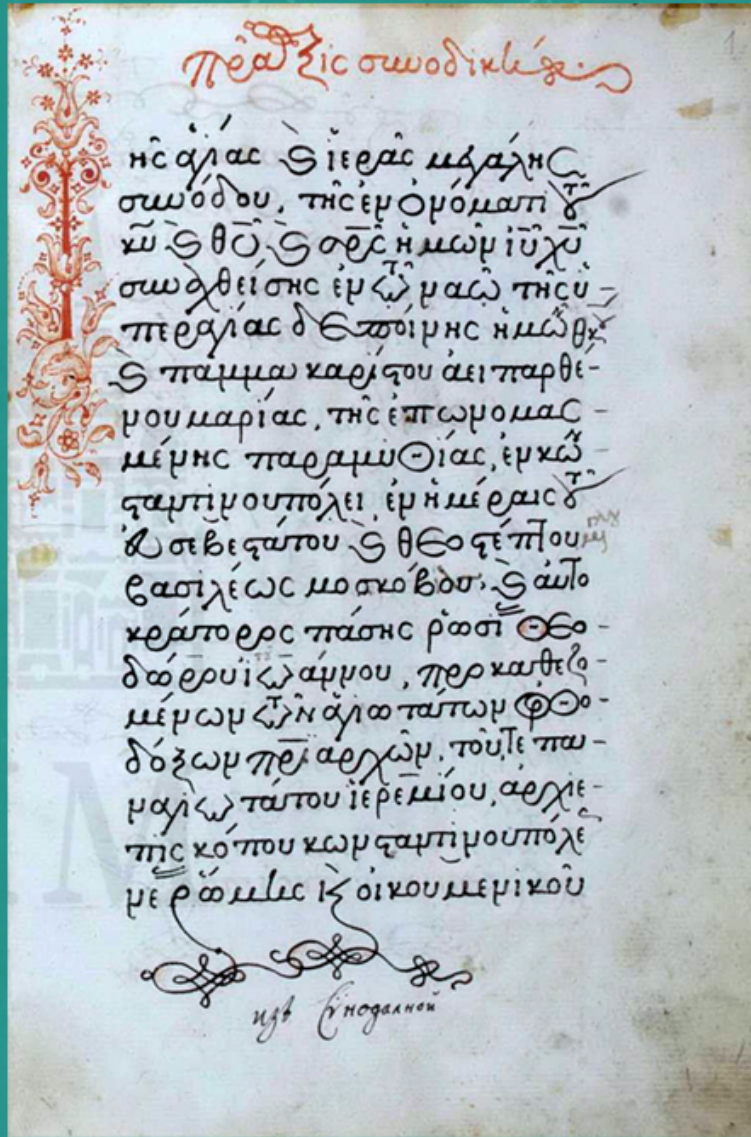 πρᾶξις συνοδική
1
ῆς ἁγίας καὶ ἱερᾶς μεγάλης
συνόδου, τῆς ἐν ὀνόματι τοῦ
κῡ καὶ θῡ καὶ σρ̅ς ἡμῶν ἰῡ χῡ
συναχθείσης ἐν τῷ ναῷ τῆς ὑ-
περαγίας δεσποίνης ἡμῶν θκ̅ου
καὶ παμμακαρίστου ἀειπαρθέ-
νου μαρίας, τῆς ἐπωνομασ-
μένης παραμυθίας, ἐν κων
σταντινουπόλει ἐν ἡμέραις τοῦ
εὐσεβεστάτου καὶ θεοστέπτου
βασιλέως μοσκόβου, καὶ αὐτο
κράτορος πάσης ῥωσί Θεο
δώρου ἰωάννου, προκαθεζο
μένων τῶν ἁγιωτάτων ὀρθο-
δόξων πρ̅ιαρχῶν, τοῦτε πα-
ναγιωτάτου ἱερεμίου, ἀρχιε-
πισκόπου κωνσταντινουπόλε
νέ ῥώμης καὶ οἰκουμενικοῦ
изъ Сѵнодалной